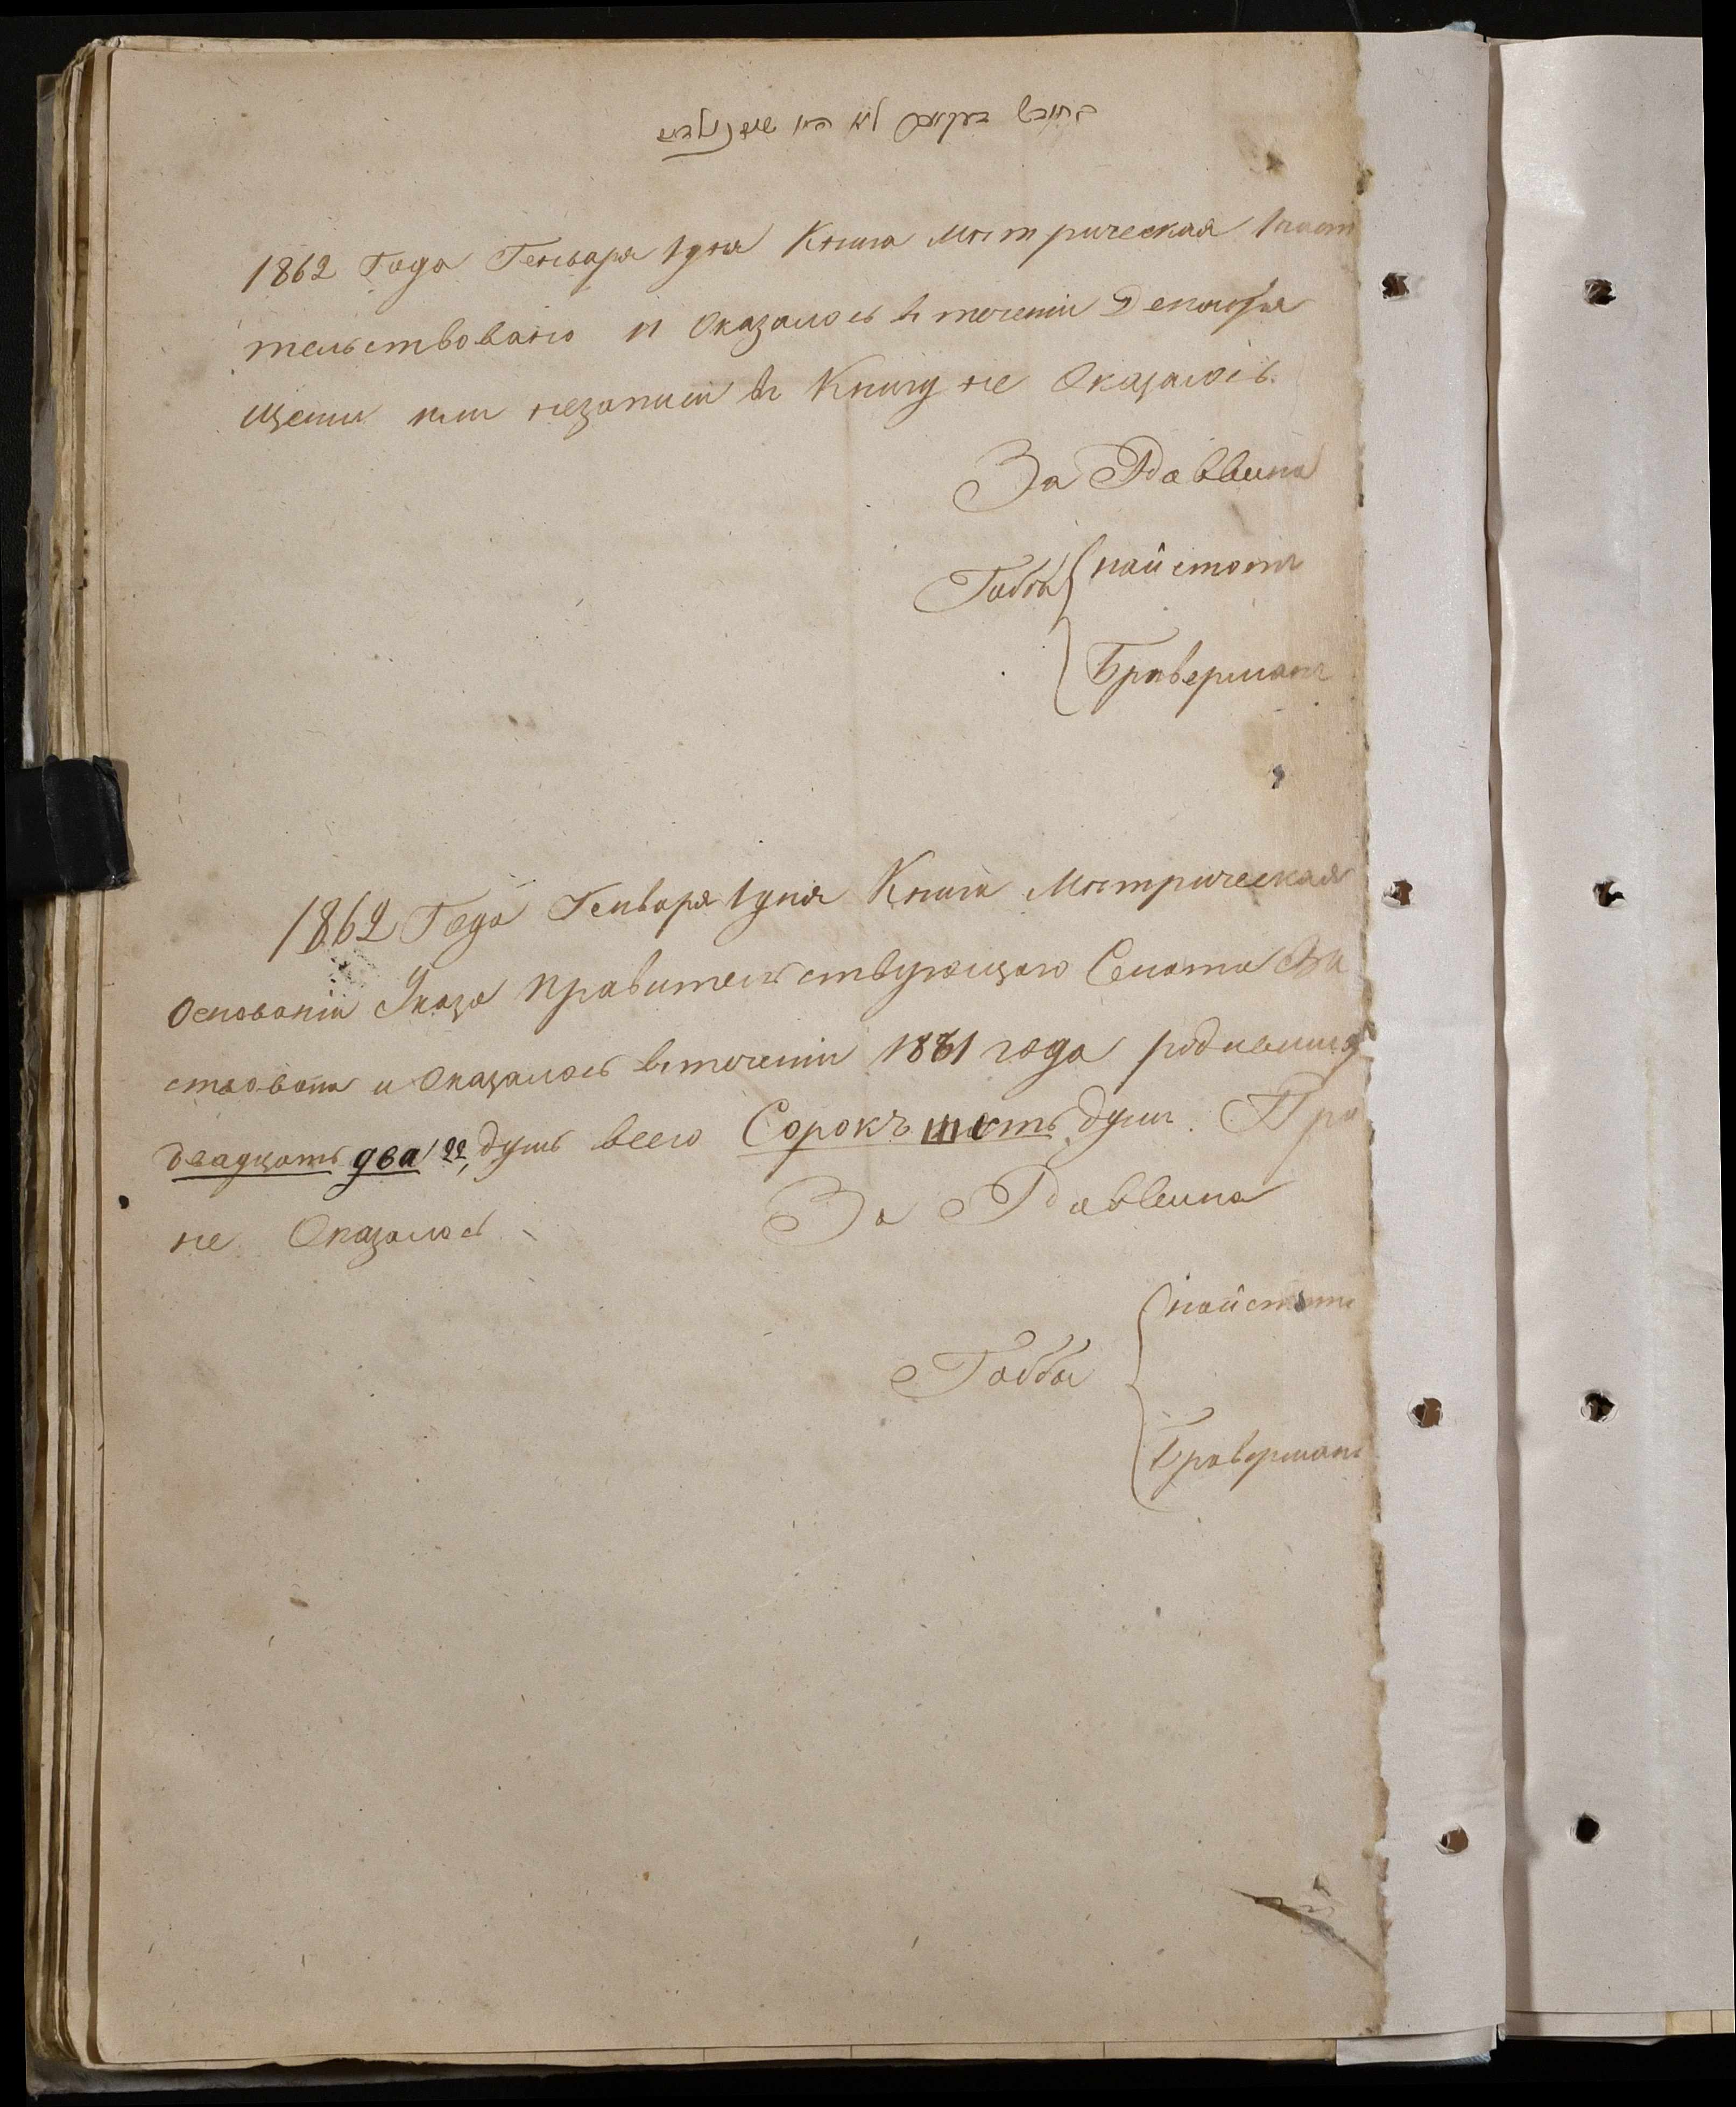 בחודש דעקאבר לא היו שום נולדים
1862 Года Генваря 1 дня Книга Метрическая 1 част
тельствовано и Оказалось въ течении Декабря
щении или незаписи въ Книгу не Оказалось.
За Раввина
Габы найстот
Браверманъ
1862 Года Генваря 1 дня Книга Метрическая
Основании Указа Правительствующаго Сената
ствована и Оказалось въ течении 1861 года родившихъ
двадцать два 22, душъ всего Сорокъ шесть душъ. Про
не Оказалось
За Раввина
Габбы
Браверманъ